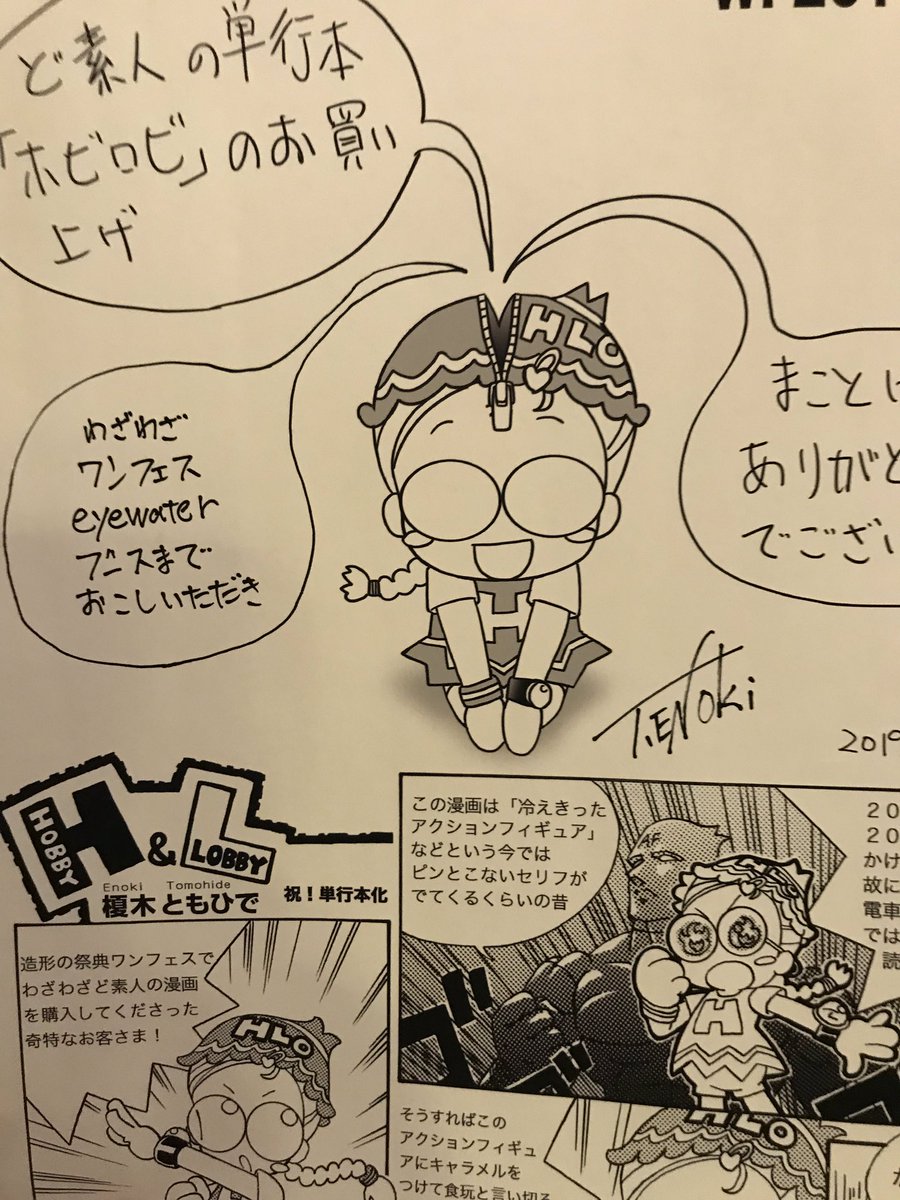 ど素人の単行本
「ホビロビ」のお買い
上げ
わざわざ
ワンフェス
eyewater
ブースまで
おこしいただき
まことに
ありがと
でござい
HLO
H
T.ENOKi
2019
HOBBY
H & L
LOBBY
Enoki Tomohide
榎木ともひで
祝！単行本化
この漫画は「冷えきった
アクションフィギュア」
などという今では
ピンとこないセリフが
でてくるくらいの昔
AF
２０
２０
かけ
故に
電車
では
読
H
G
造形の祭典ワンフェスで
わざわざど素人の漫画
を購入してくださった
奇特なお客さま！
HLO
そうすればこの
アクションフィギュ
アにキャラメルを
つけて食玩と言い切る
HLO